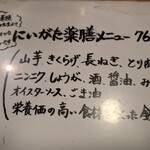 にいがた薬膳メニュー 76
山芋、きくらげ、長ねぎ、とり
ニンニク、しょうが、酒、醤油、み
オイスターソース、ごま油
栄養価の高い、食材